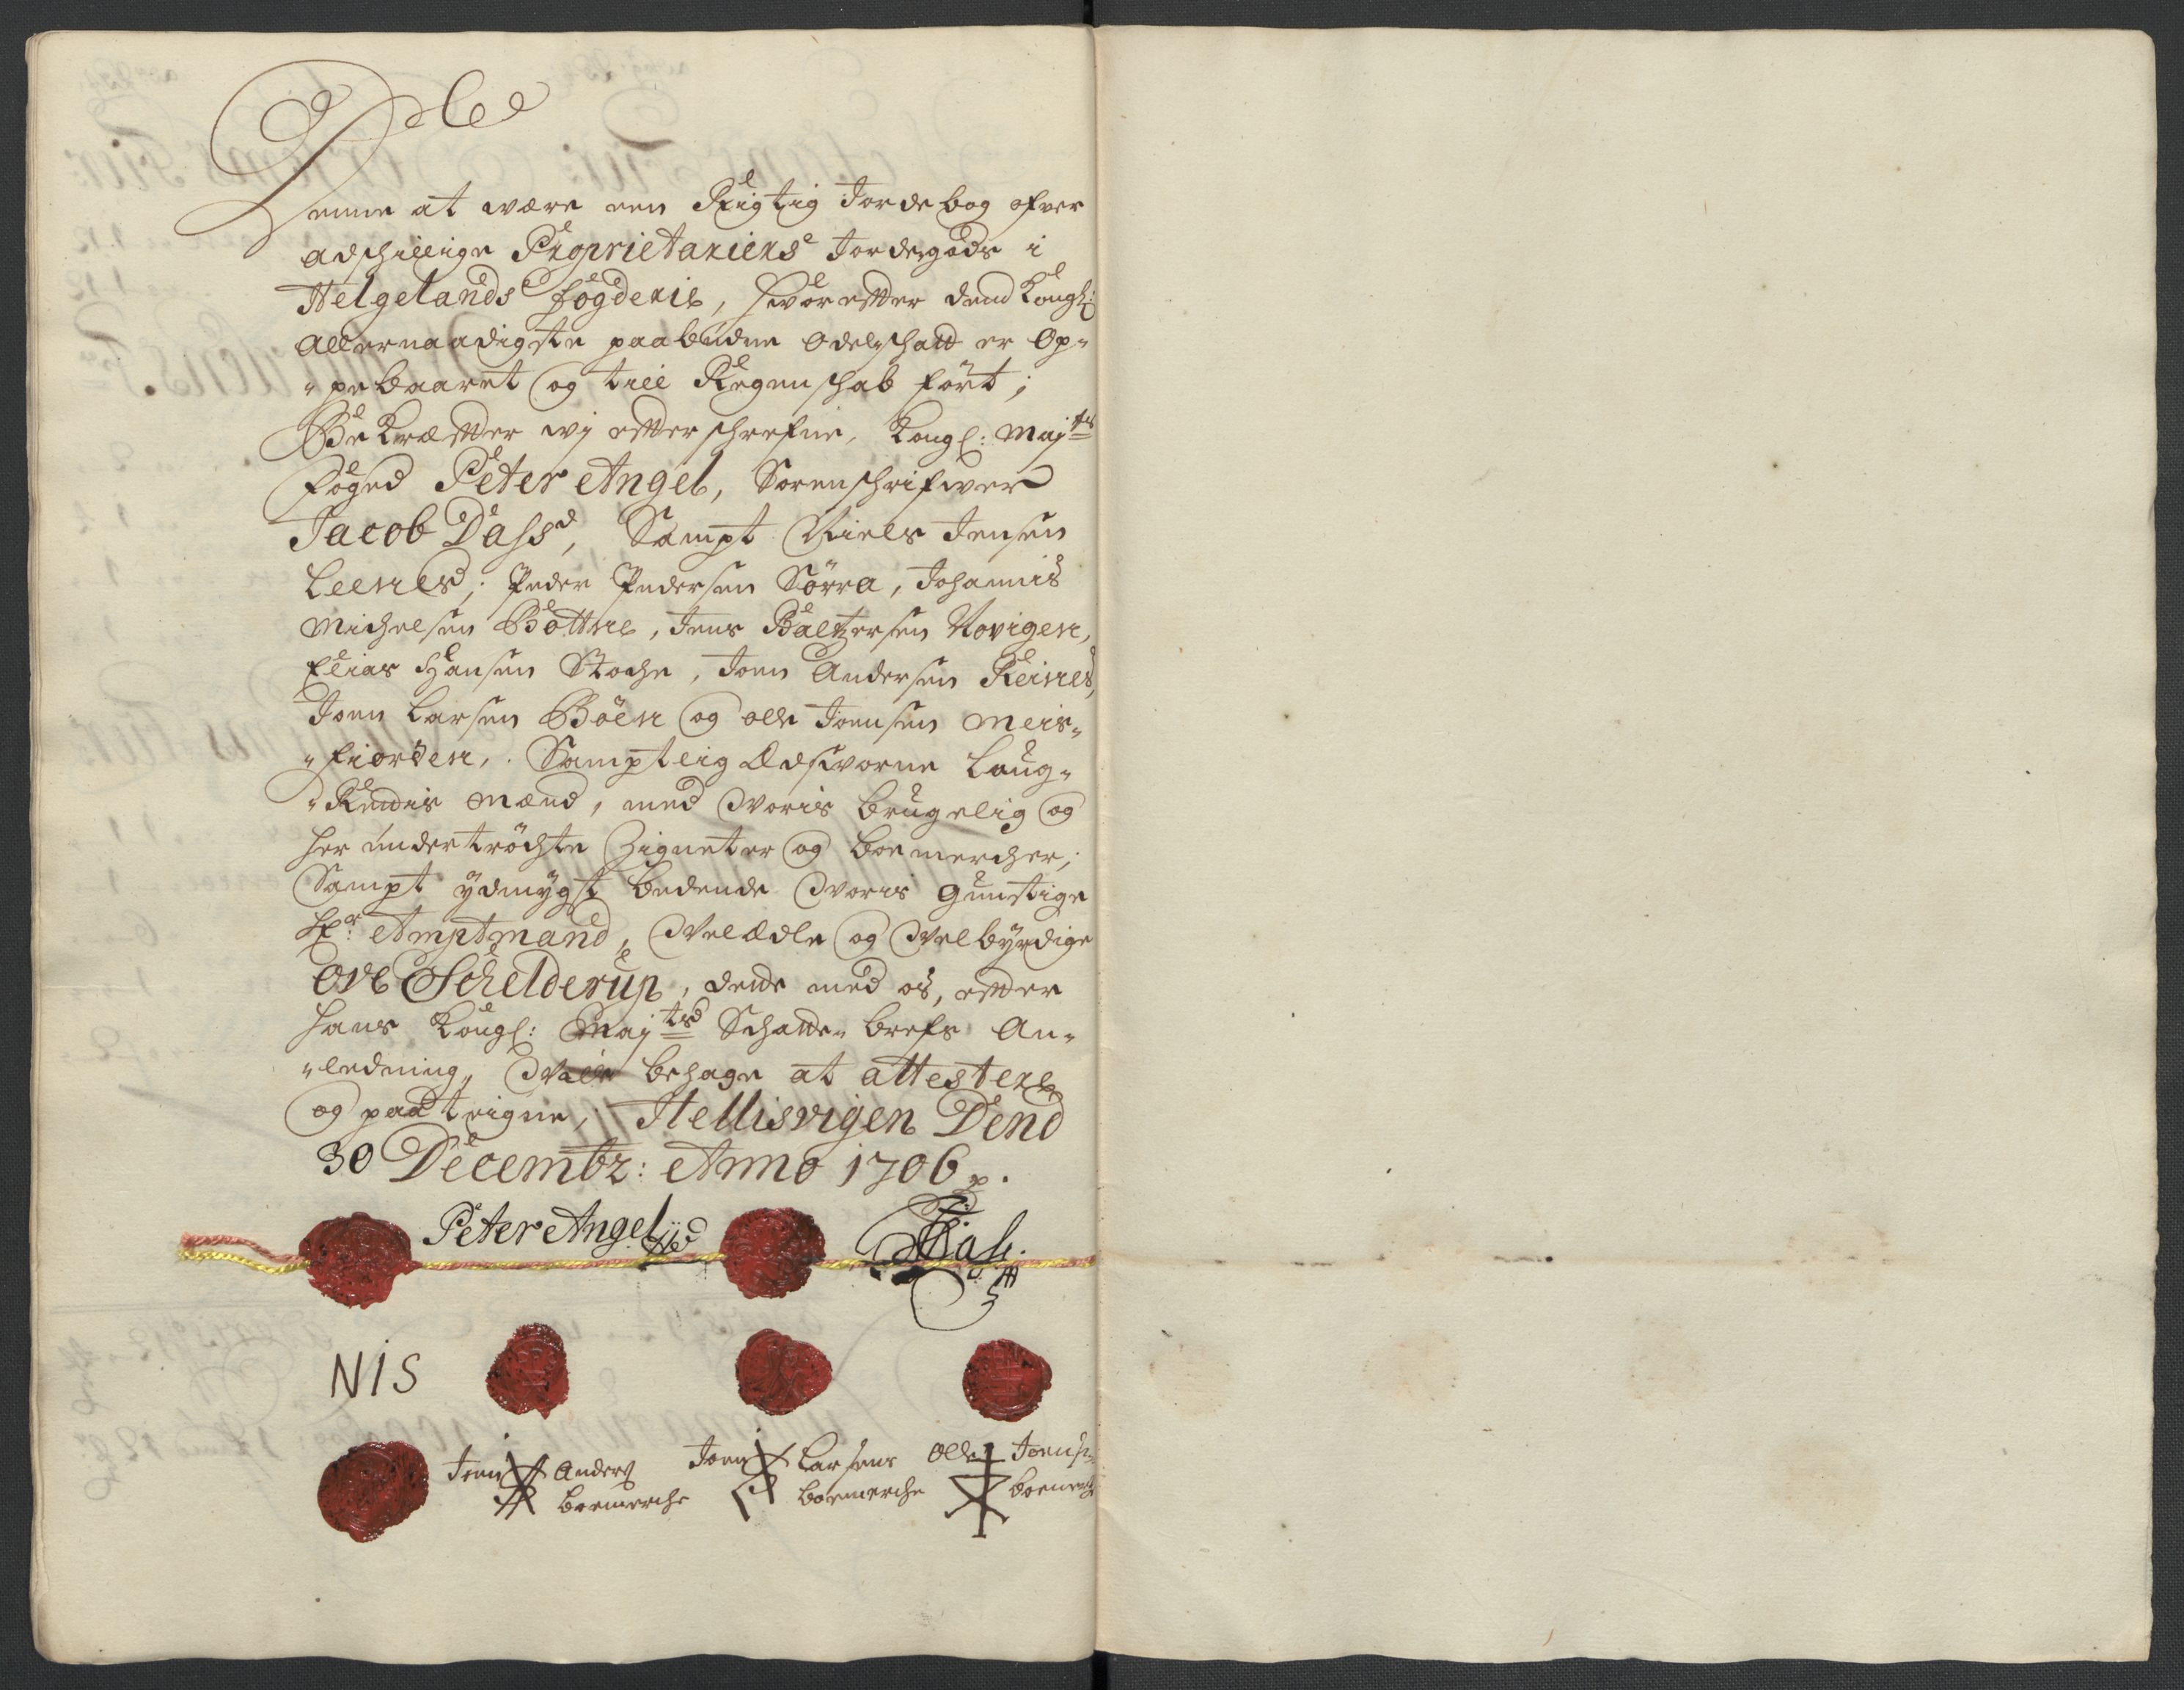 Denne at være een Rigtig Jordebog ofver
adschillige Proprietariers Jordegods i
Helgelands fogderie, hvor effter dend Kongl:
Allernaadigste paabudne Odelschatt er Op-
-pebaaret og till Regenschab ført;
Bekræffter wj effterschrefne, Kongl: Maj.ts
foged Peter Angel, Sorenschrifwer
Jacob Dass, Sampt Niels Jensen
Leenes, Peder Pedersen Sörra, Johannis
Michelsen Bottne, Jens Baltzersen Novigen,
Elias Hansen Stoche, Joen Andersen Reines,
Joen Larsen Böen og olle Joensen Meis-
-fiorden, Samptlig Edsvorne Laug-
-Rettis Mænd, med Woris brugelig og
her undertröchte Zigneter og boemercher;
Sampt ydmygst bedende Woris gunstige
Hr: Amptmand, Velædle og Velbyrdige
Ove Schelderup, dette med os, effter
hans Kongl: Maj.ts Schatte-brefs An-
-ledning, Ville behage at attestere
og paateigne, Hellisvigen Dend
30 Decembr: Anno 1706 p.
Peter Angel
JDass.
NIS
Joen Anders boemerche
Joen Larsens boemerche
Olle Joens boemerch